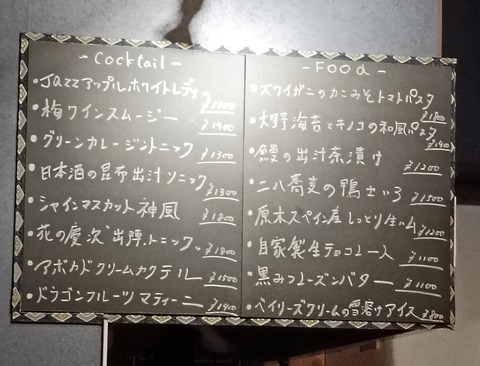 - Cocktail -
・Jazzアップルホワイトレディ
・梅ワインスムージー ¥1900
・グリーンカレージントニック ¥1300
・日本酒の昆布出汁ソニック ¥1300
・シャインマスカット神風 ¥1800
・花の慶次"出陣"トニック ¥1800
・アボカドクリームカクテル ¥1500
・ドラゴンフルーツマティーニ ¥1900
- FOOd -
・ズワイガニのカニみそトマトパスタ ¥1800
・大野海苔とキノコの和風パスタ ¥1900
・鰻の出汁茶漬け ¥1200
・二八蕎麦の鴨せいろ ¥1500
・原木スペイン産しっとり生ハム ¥1200
・自家製生チョコレート ¥1100
・黒みつレーズンバター ¥1100
・ベイリーズクリームの雪溶けアイス ¥800